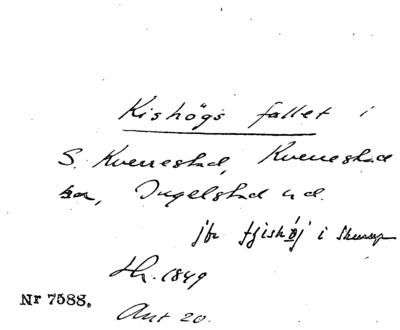 Kishögs fallet i
S. Kverrestad, Kverrestad
sn, Ingelstad hd.
jfr fjishöj i Skurup
Hr. 1849
Nr 7588.
Ant 20.